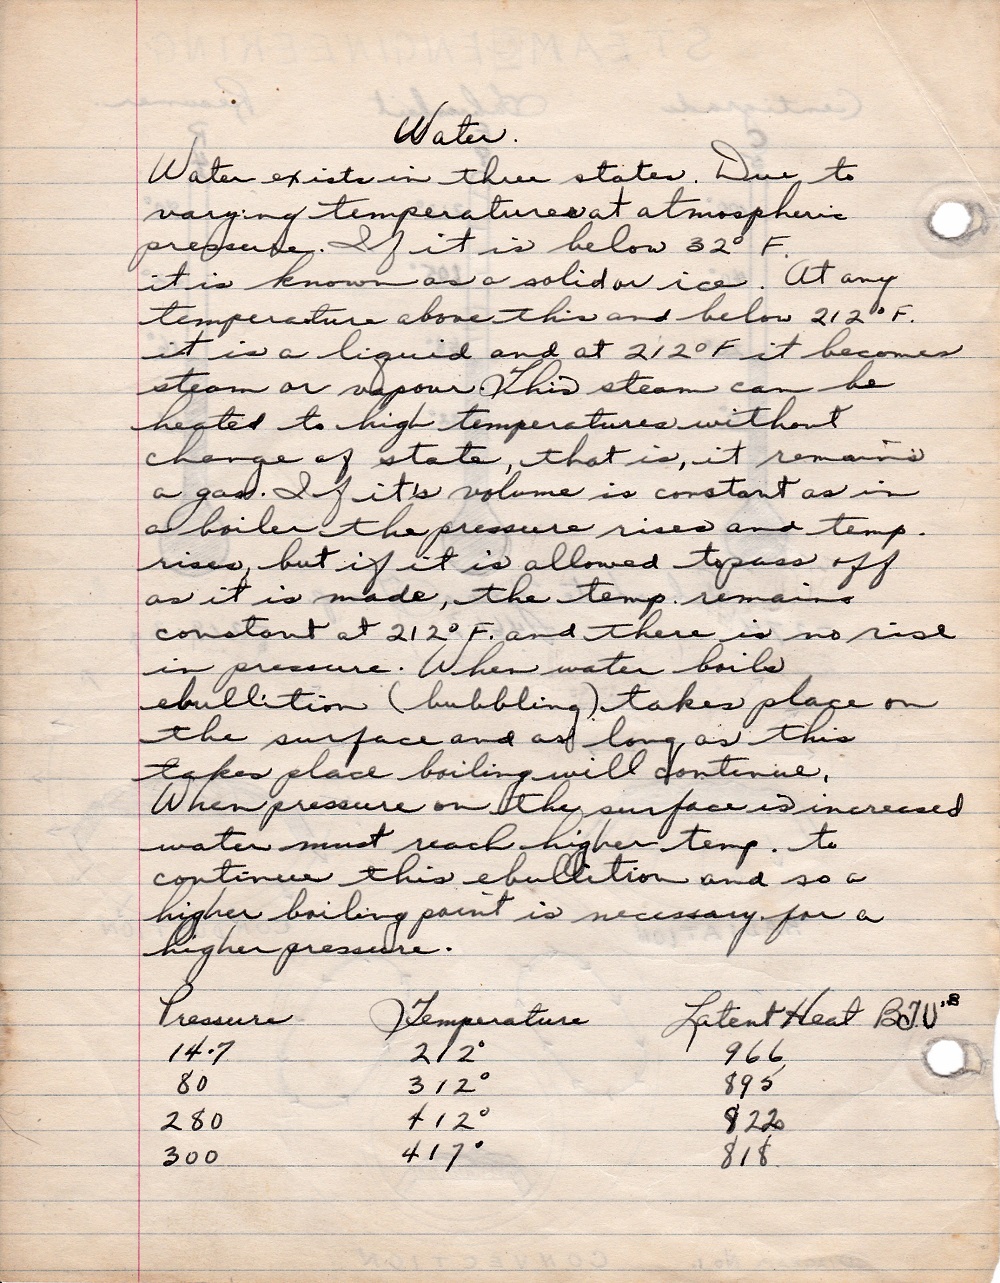 Water.
Water exists in three states. Due to
varying temperatures at atmospheric
pressure. If it is below 32° F.
it is known as a solid or ice. At any
temperature above this and below 212° F.
it is a liquid and at 212° F it becomes
steam or vapour. This steam can be
heated to high temperatures without
change of state, that is, it remains
a gas. If it's volume is constant as in
a boiler the pressure rises and temp.
rises, but if it is allowed to pass off
as it is made, the temp. remains
constant at 212° F. and there is no rise
in pressure. When water boils
ebullition (bubbling) takes place on
the surface and as long as this
takes place boiling will continue.
When pressure on the surface is increased
water must reach higher temp. to
continue this ebullition and so a
higher boiling point is necessary for a
higher pressure.
Pressure Temperature Latent Heat BTU'S
14.7 212° 966
80 312° 895
280 412° 822
300 417° 818